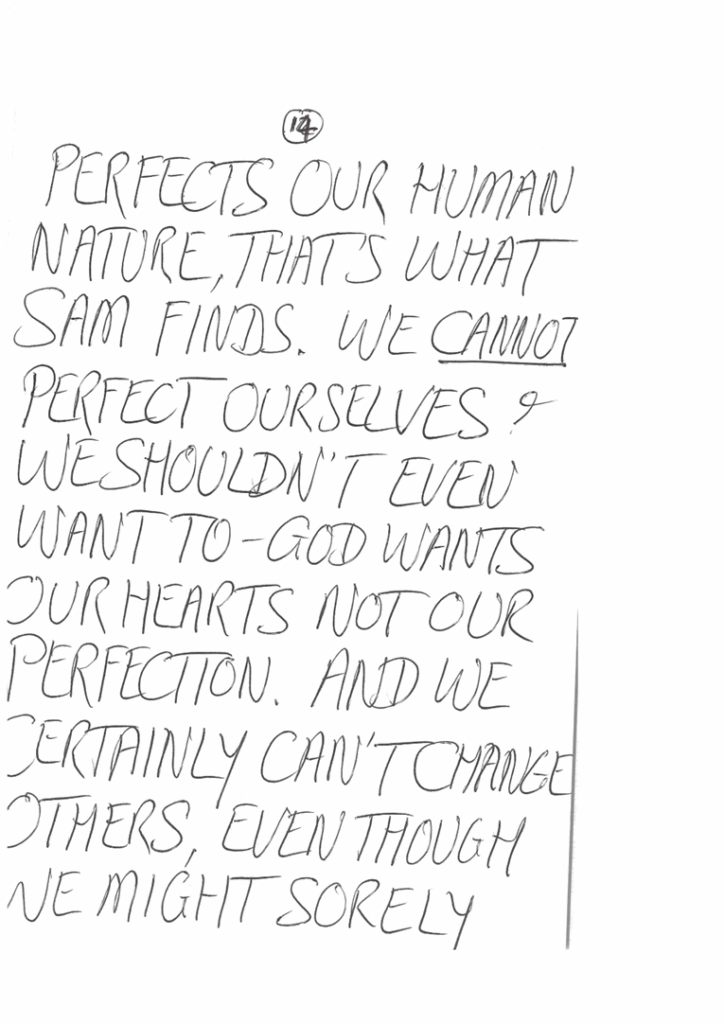 14
PERFECTS OUR HUMAN
NATURE, THAT'S WHAT
SAM FINDS. WE CANNOT
PERFECT OURSELVES &
WE SHOULDN'T EVEN
WANT TO - GOD WANTS
OUR HEARTS NOT OUR
PERFECTION. AND WE
CERTAINLY CAN'T CHANGE
OTHERS, EVEN THOUGH
WE MIGHT SORELY